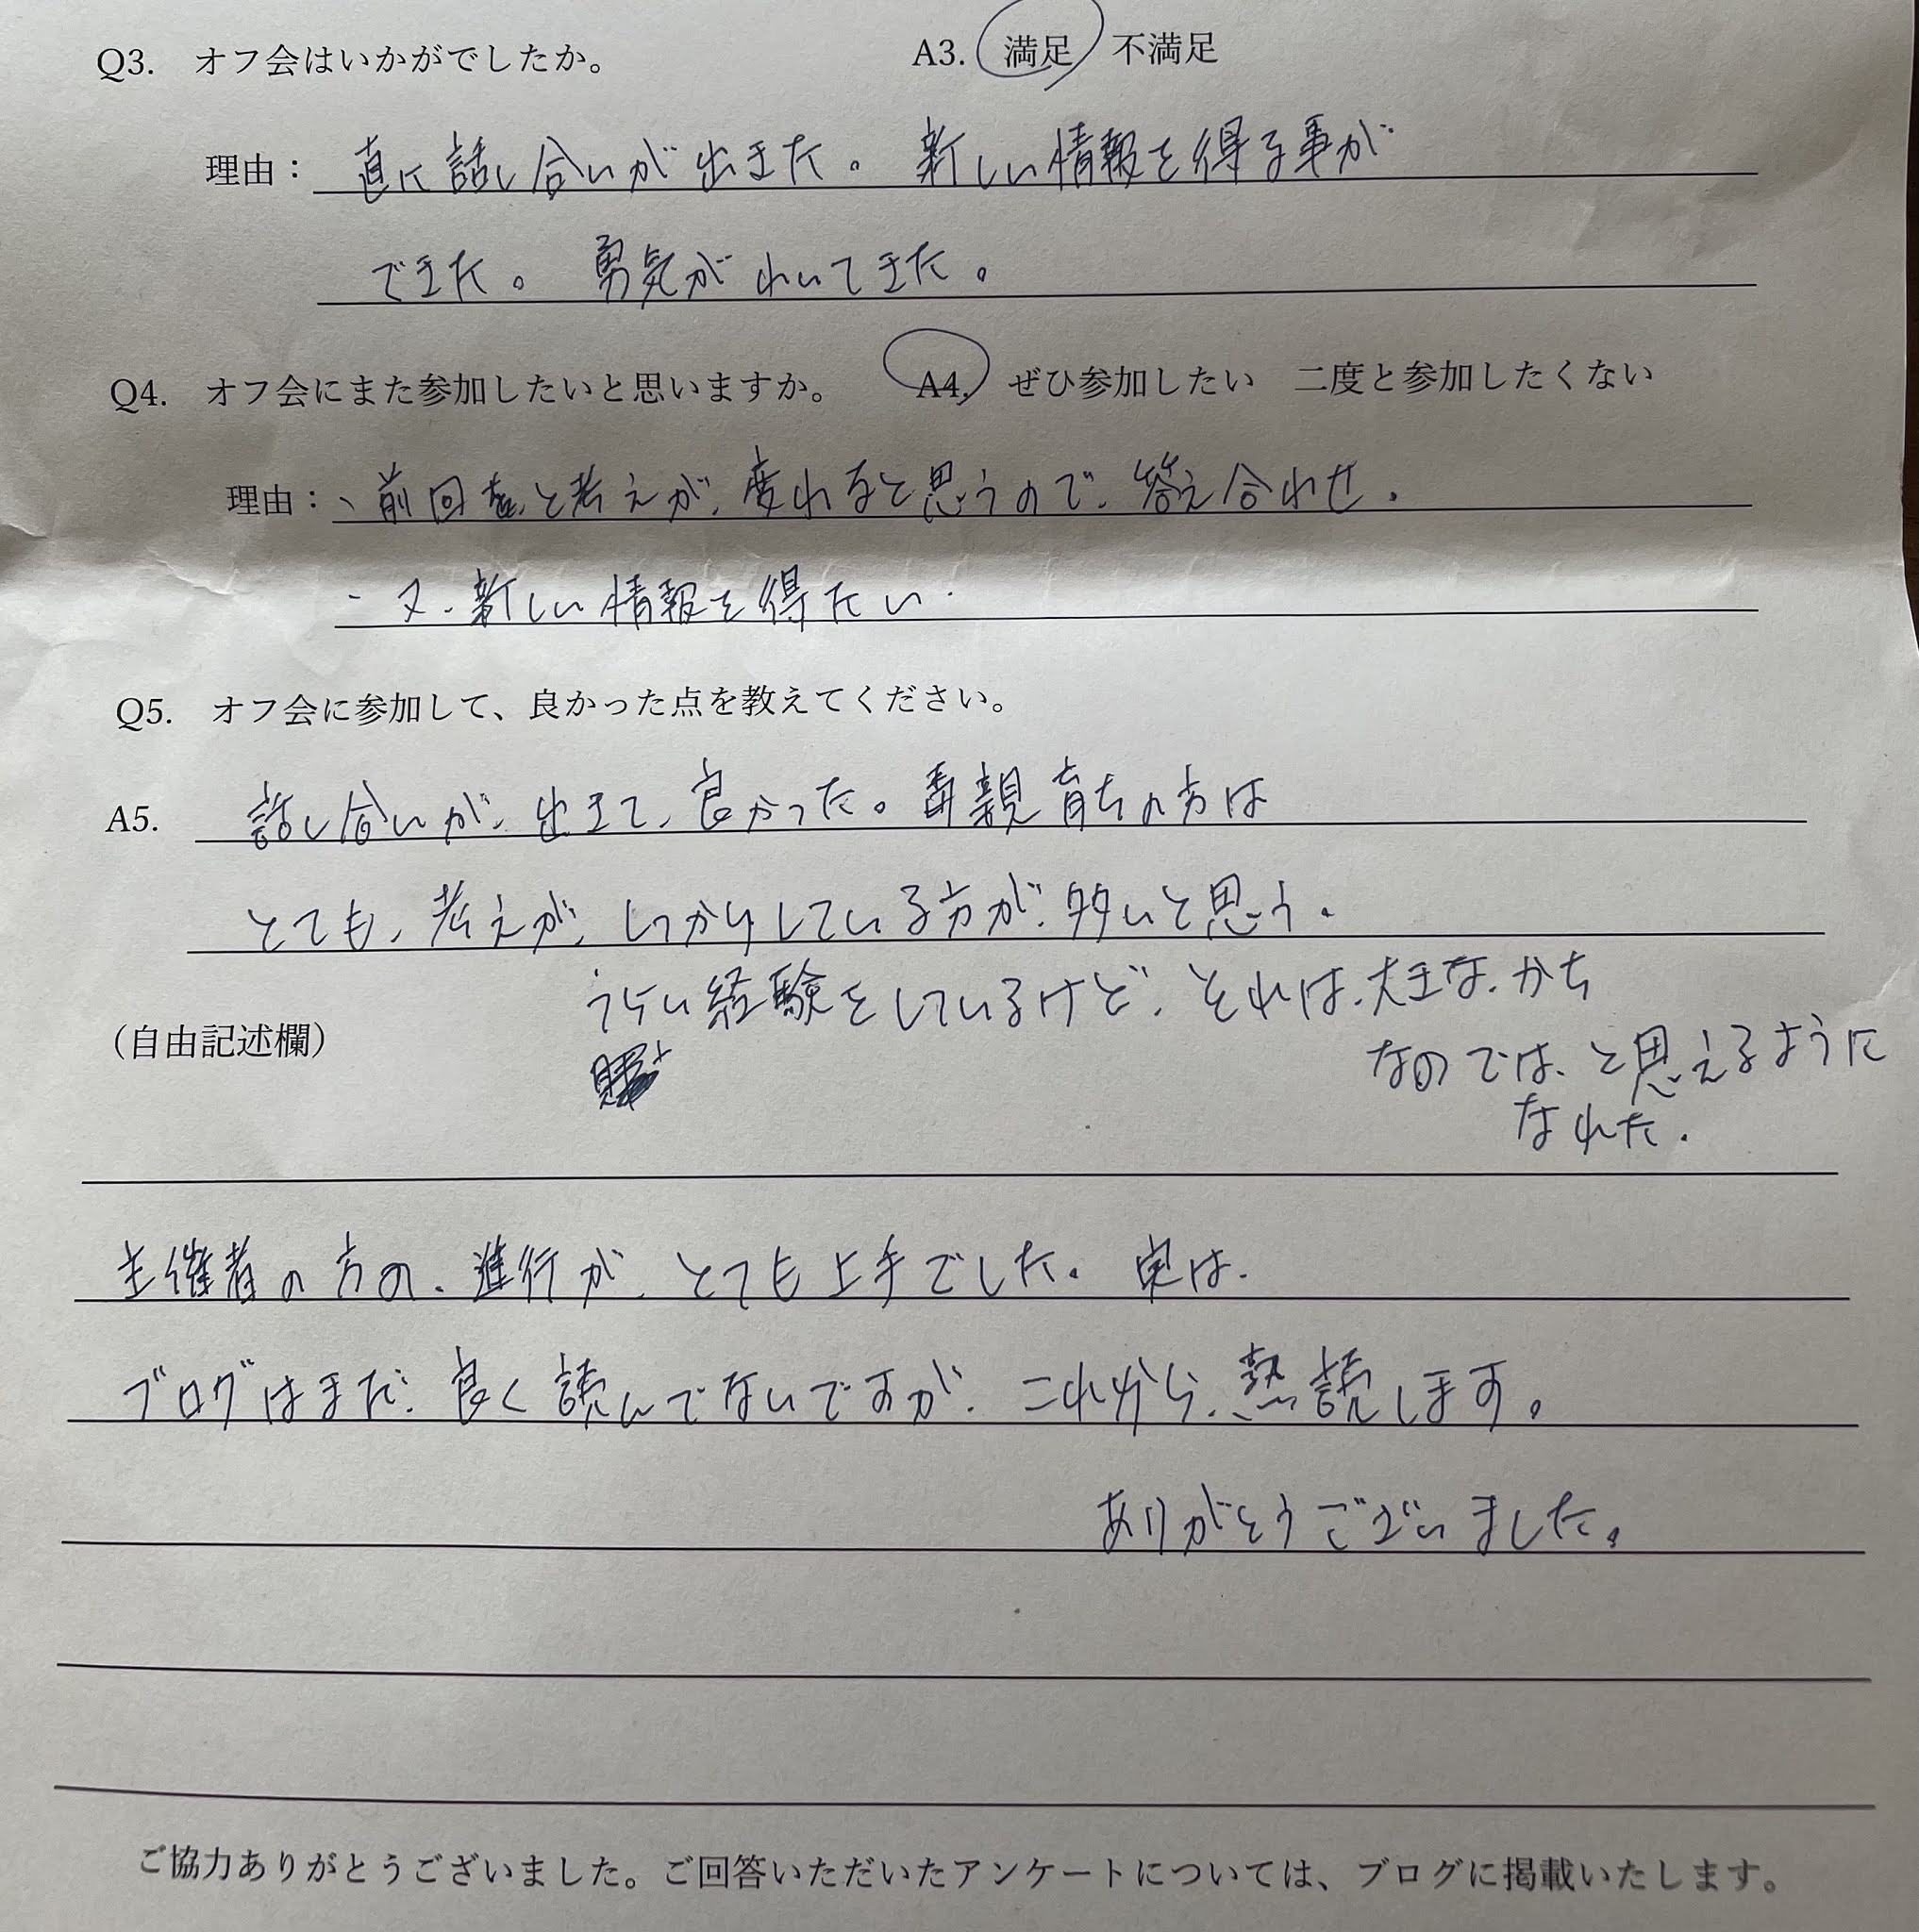 Q3. オフ会はいかがでしたか。 A3. 満足 不満足
理由： 直に話し合いが出来た。新しい情報を得る事が
できた。 勇気がわいてきた。
Q4. オフ会にまた参加したいと思いますか。 A4. ぜひ参加したい 二度と参加したくない
理由： 、前回と考えが、変わると思うので、答え合わせ、
・又、新しい情報を得たい・
Q5. オフ会に参加して、良かった点を教えてください。
A5. 話し合いが、出きて、良かった。毒親育ちの方は
とても、考えが、しっかりしている方が、多いと思う。
つらい経験をしているけど、それは、大きな、かち
(自由記述欄)
なのでは、と思えるように
なれた。
主催者の方の、進行が、とても上手でした。実は、
ブログはまだ、良く読んでないですが、これから、熱読します。
ありがとうございました。
ご協力ありがとうございました。ご回答いただいたアンケートについては、ブログに掲載いたします。